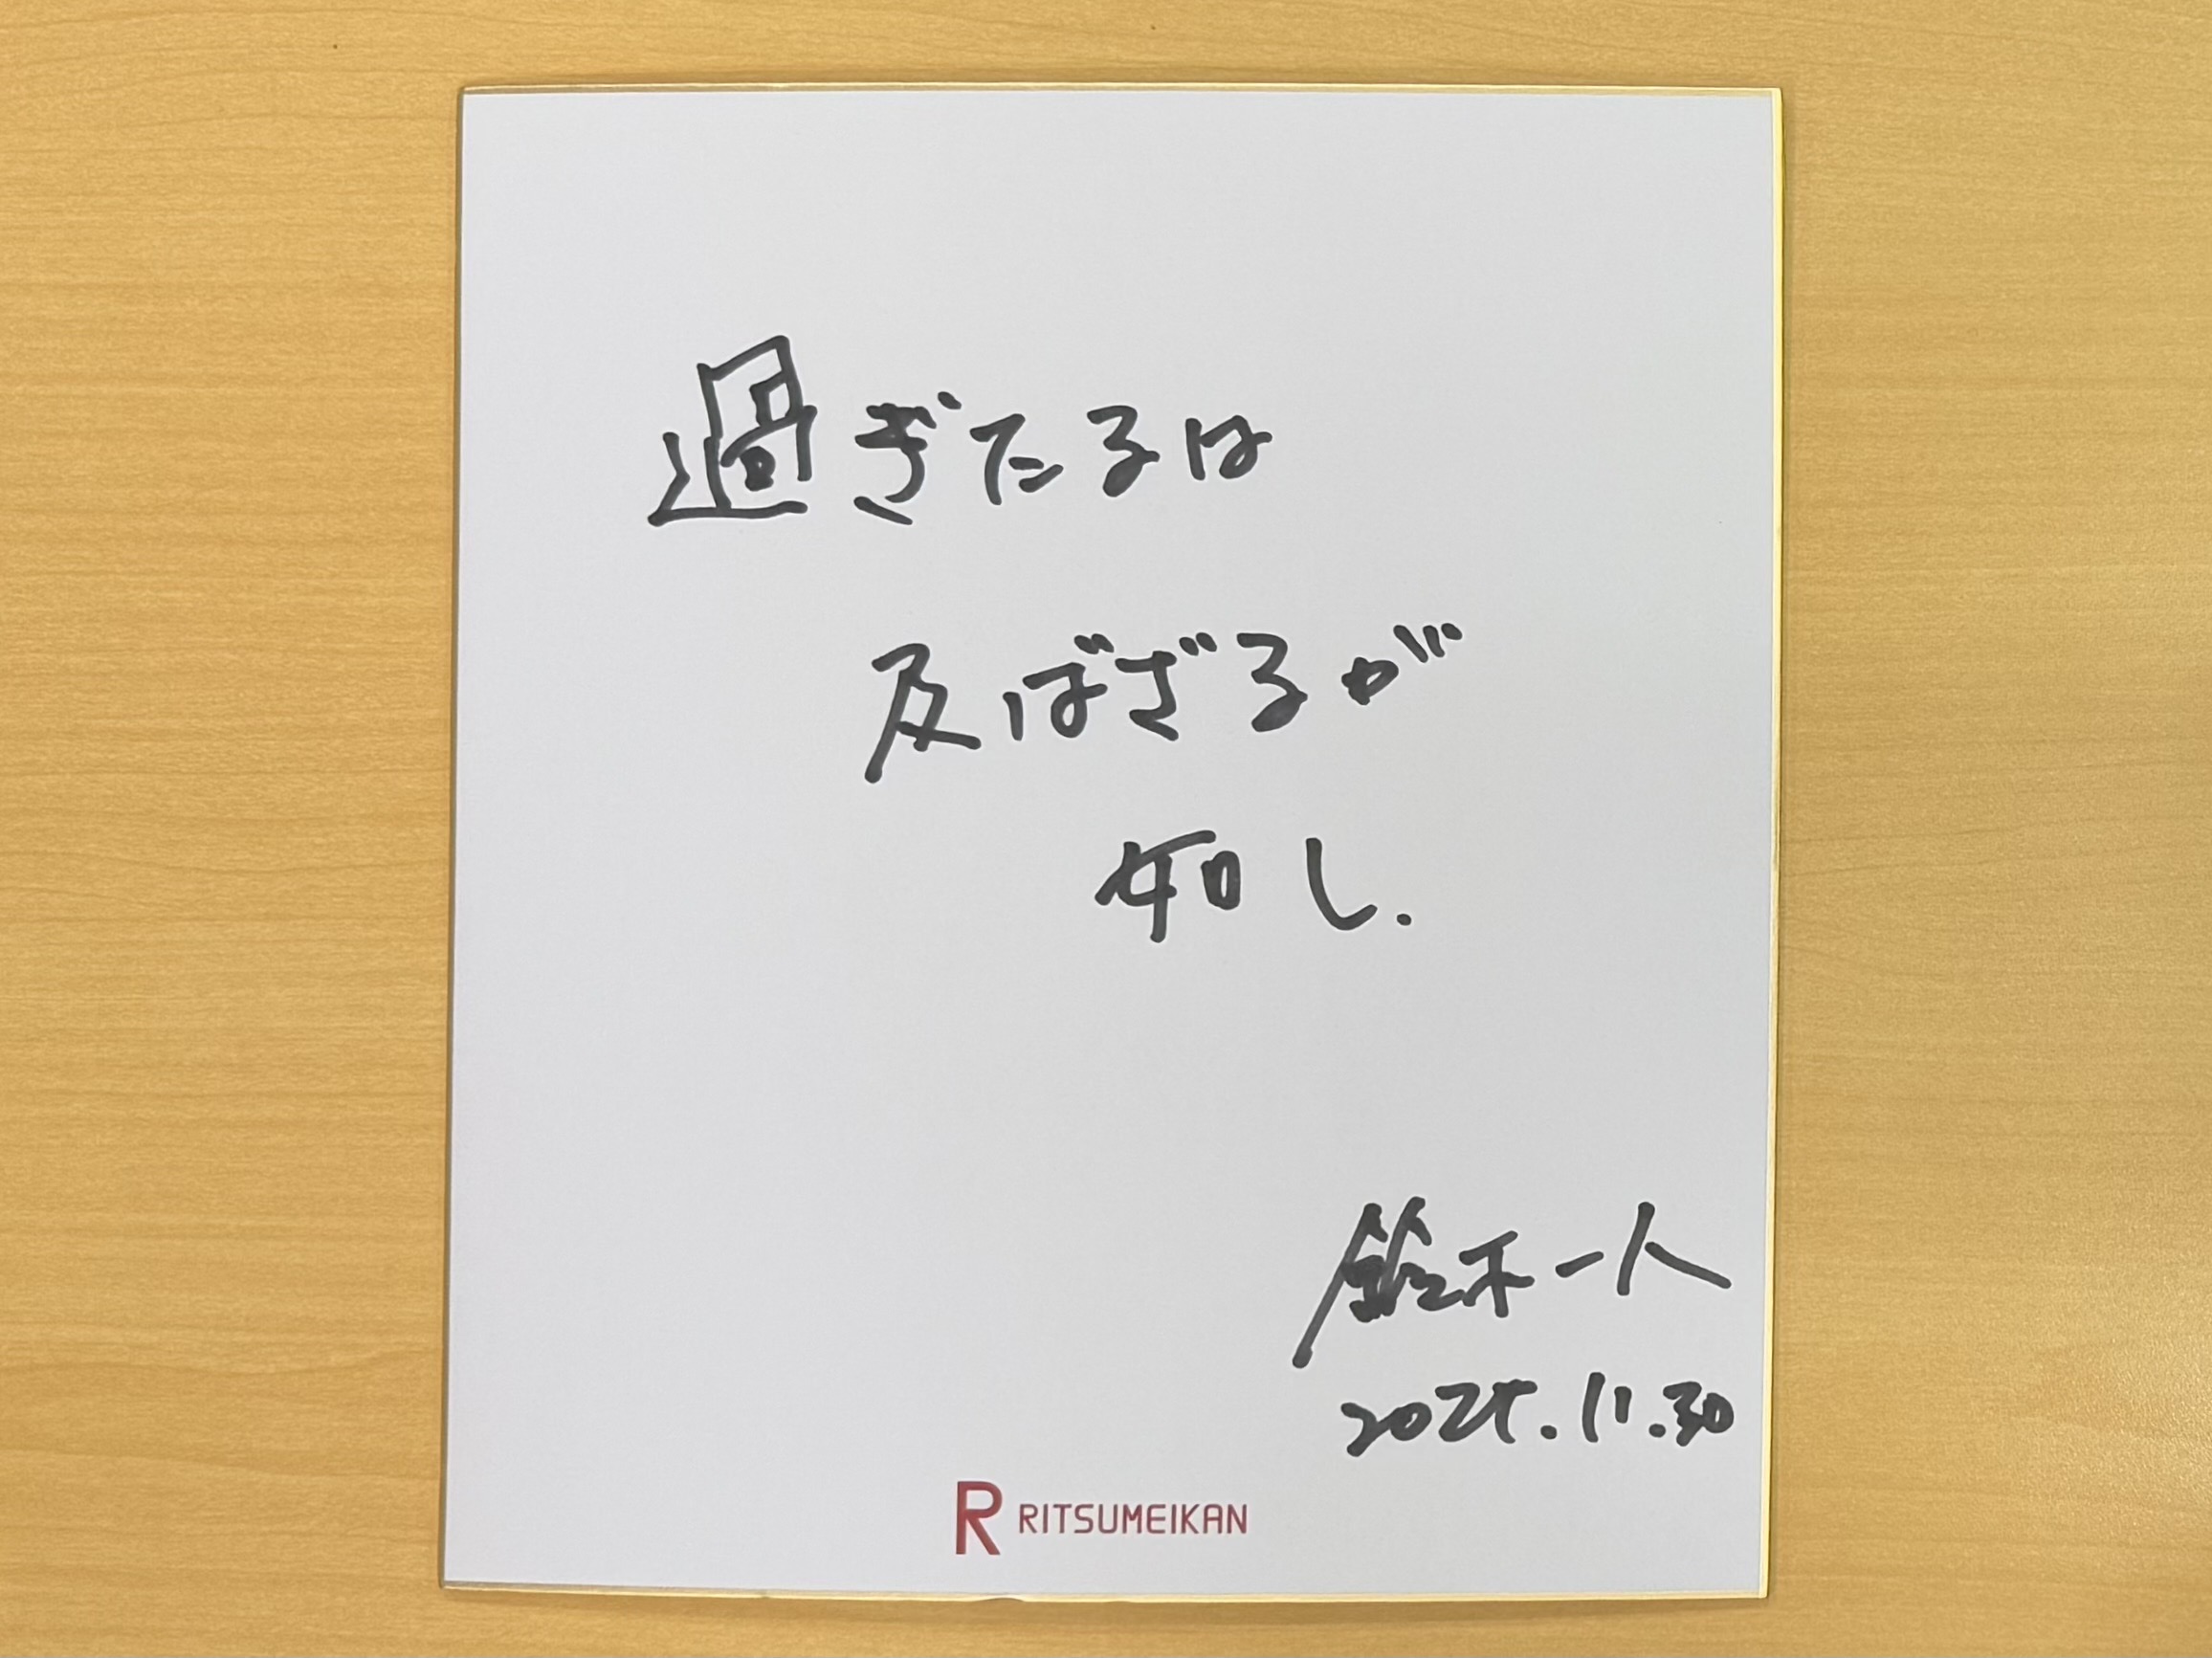 過ぎたるは
及ばざるが
如し.
鈴木一人
2025.11.30
R RITSUMEIKAN